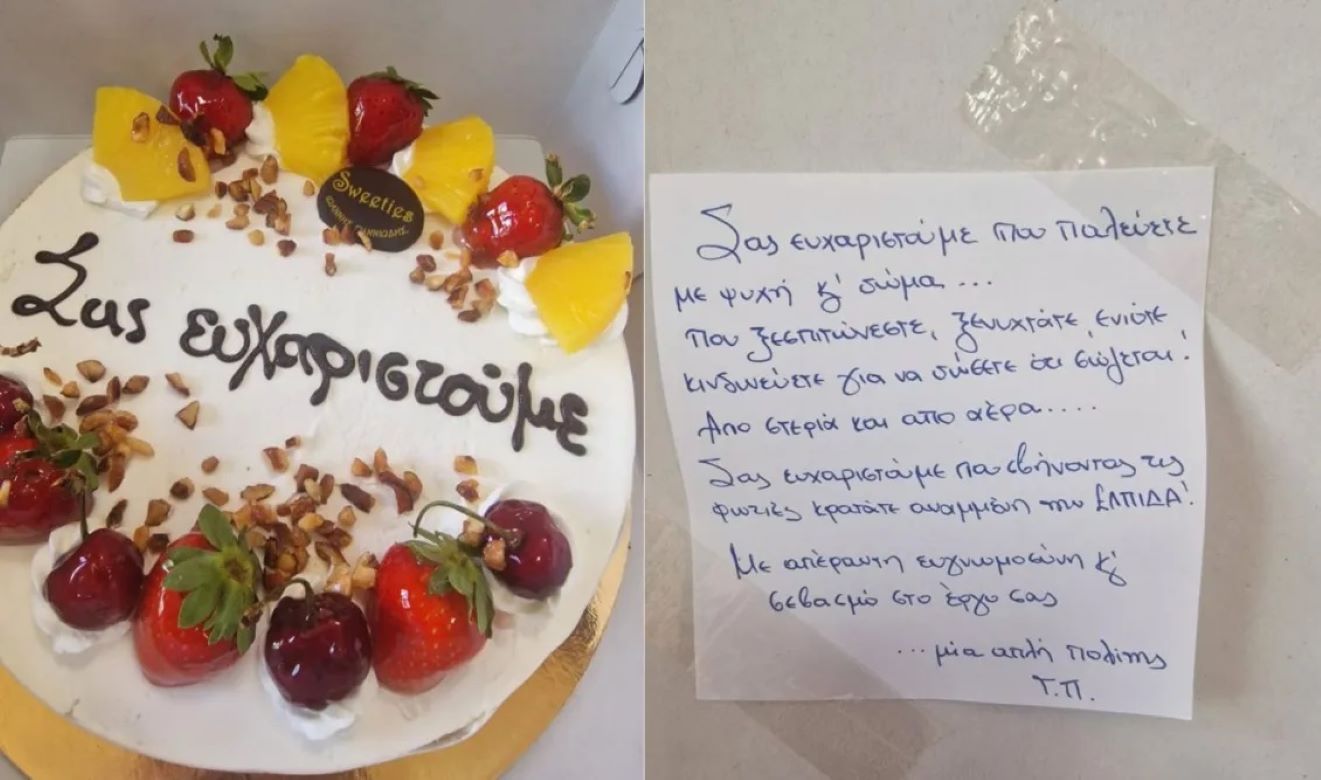 Sweeties
Σας ευχαριστούμε
Σας ευχαριστούμε που παλεύετε
με ψυχή κ' σώμα...
που ξεσπιτώνεστε, ξενυχτάτε, ενιότε
κινδυνεύετε για να σώσετε ότι σώζεται!
Από στεριά και από αέρα.....
Σας ευχαριστούμε που σβήνοντας τις
φωτιές κρατάτε αναμμένη την ΕΛΠΙΔΑ!
Με απέραντη ευγνωμοσύνη κ'
σεβασμό στο έργο σας
...μία απλή πολίτης
Τ.Π.